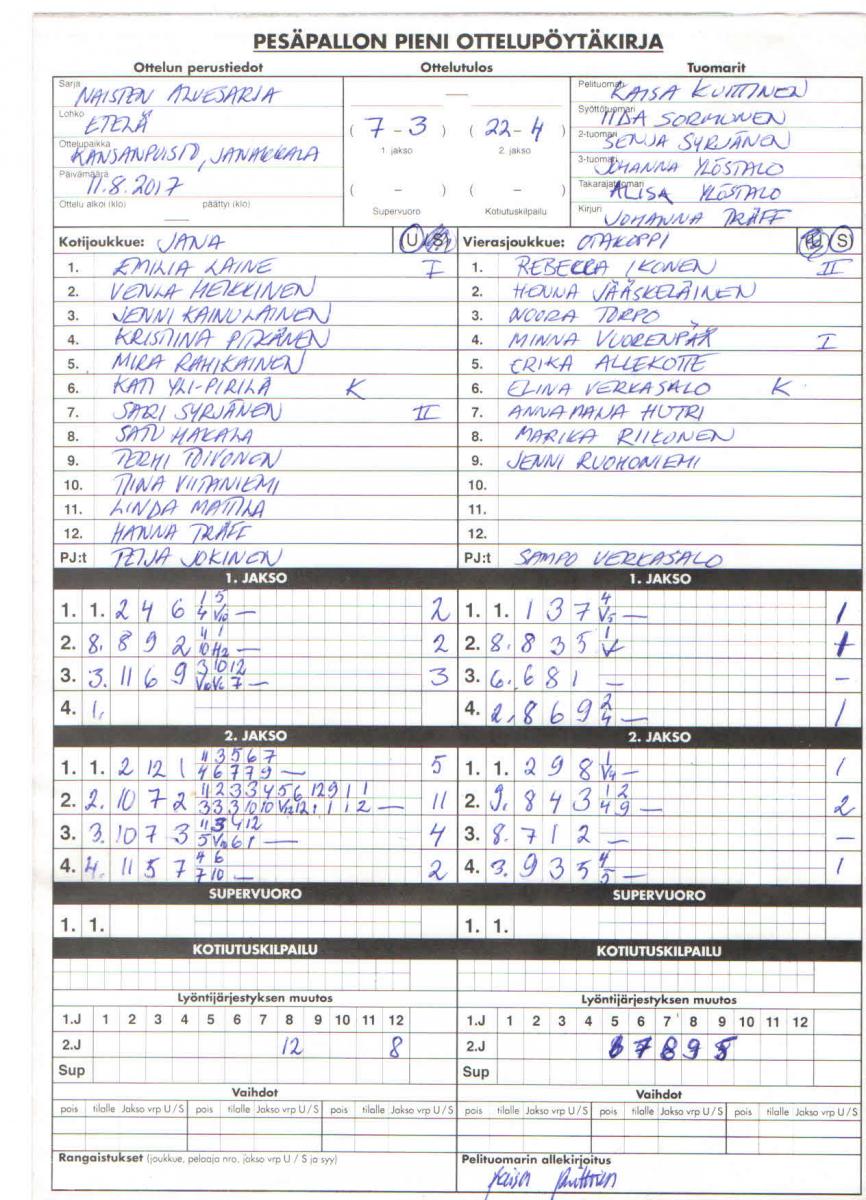 PESÄPALLON PIENI OTTELUPÖYTÄKIRJA
Ottelun perustiedot Ottelutulos Tuomarit
Sarja NAISTEN ALUESARJA
Lohko ETELÄ
Ottelupaikka KANSANPUISTO, JANAKKALA
Päivämäärä 11.8.2017
Ottelu alkoi (klo) päättyi (klo) —
—
( 7 - 3 ) ( 22 - 4 )
1. jakso 2. jakso
( - ) ( - )
Supervuoro Kotiutuskilpailu
Pelituomari KAISA KUITTINEN
Syöttötuomari IIDA SORMUNEN
2-tuomari SENJA SYRJÄNEN
3-tuomari JOHANNA YLÖSTALO
Takarajatuomari ALISA YLÖSTALO
Kirjuri JOHANNA TRÄFF
Kotijoukkue: JANA U S Vierasjoukkue: OTAKOPPI U S
1. EMILIA LAINE I 1. REBEKKA IKONEN II
2. VENLA HEIKKINEN 2. HENNA JÄÄSKELÄINEN
3. JENNI KAINULAINEN 3. NOORA TORPO
4. KRISTIINA PITKÄNEN 4. MINNA VUORENPÄÄ I
5. MIRA RAHIKAINEN 5. ERIKA ALLEKOTTE
6. KATI YLI-PIRILÄ K 6. ELINA VERKASALO K
7. SARI SYRJÄNEN II 7. ANNAMANA HUTRI
8. SATU HAKALA 8. MARIKA RIIKONEN
9. TERHI TOIVONEN 9. JENNI RUOHONIEMI
10. TIINA VIITANIEMI 10.
11. LINDA MATTILA 11.
12. HANNA TRÄFF 12.
PJ:t PETJA JOKINEN PJ:t SAMPO VERKASALO
1. JAKSO 1. JAKSO
1. 1. 2 4 6 1 5 4 V10 — 2 1. 1. 1 3 7 4 V5 — 1
2. 8. 8 9 2 11 1 10 H2 — 2 2. 8. 8 3 5 1 V 1
3. 3. 11 6 9 3 10 12 V10 V6 7 — 3 3. 6. 6 8 1 — -
4. 1. 4. 2. 8 6 9 2 4 — 1
2. JAKSO 2. JAKSO
1. 1. 2 12 1 11 3 5 6 7 4 6 7 7 9 — 5 1. 1. 2 9 8 1 V4 — 1
2. 2. 10 7 2 11 2 3 3 4 5 6 12 9 1 1 3 3 3 10 10 V12 12 1 1 1 2 — 11 2. 9. 8 4 3 1 2 4 9 — 2
3. 3. 10 7 3 11 3 4 12 5 V10 6 1 — 4 3. 8. 7 1 2 — -
4. 4. 11 5 7 4 6 7 10 — 2 4. 3. 9 3 5 4 5 — 1
SUPERVUORO SUPERVUORO
1. 1. 1. 1.
KOTIUTUSKILPAILU KOTIUTUSKILPAILU
Lyöntijärjestyksen muutos Lyöntijärjestyksen muutos
1.J 1 2 3 4 5 6 7 8 9 10 11 12 1.J 1 2 3 4 5 6 7 8 9 10 11 12
2.J 12 8 2.J 6 7 8 9 5
Sup Sup
Vaihdot Vaihdot
pois tilalle Jakso vrp U / S pois tilalle Jakso vrp U / S pois tilalle Jakso vrp U / S pois tilalle Jakso vrp U / S pois tilalle Jakso vrp U / S pois tilalle Jakso vrp U / S
Rangaistukset (joukkue, pelaaja nro, jakso vrp U / S ja syy) Pelituomarin allekirjoitus
Kaisa Kuittinen